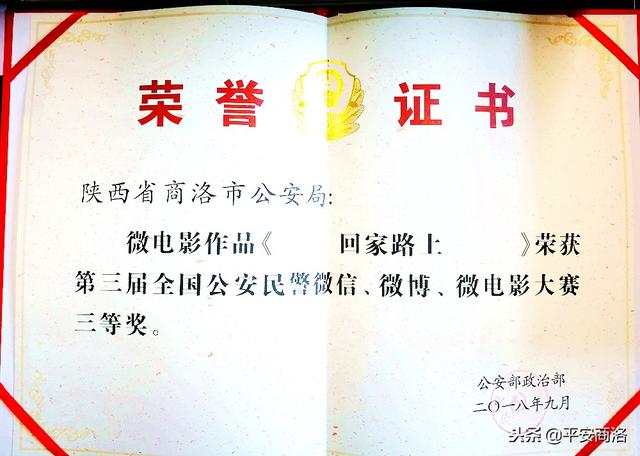 荣誉证书
陕西省商洛市公安局:
微电影作品《 回家路上 》荣获
第三届全国公安民警微信、微博、微电影大赛
三等奖。
公安部政治部
二〇一八年九月
头条 @平安商洛